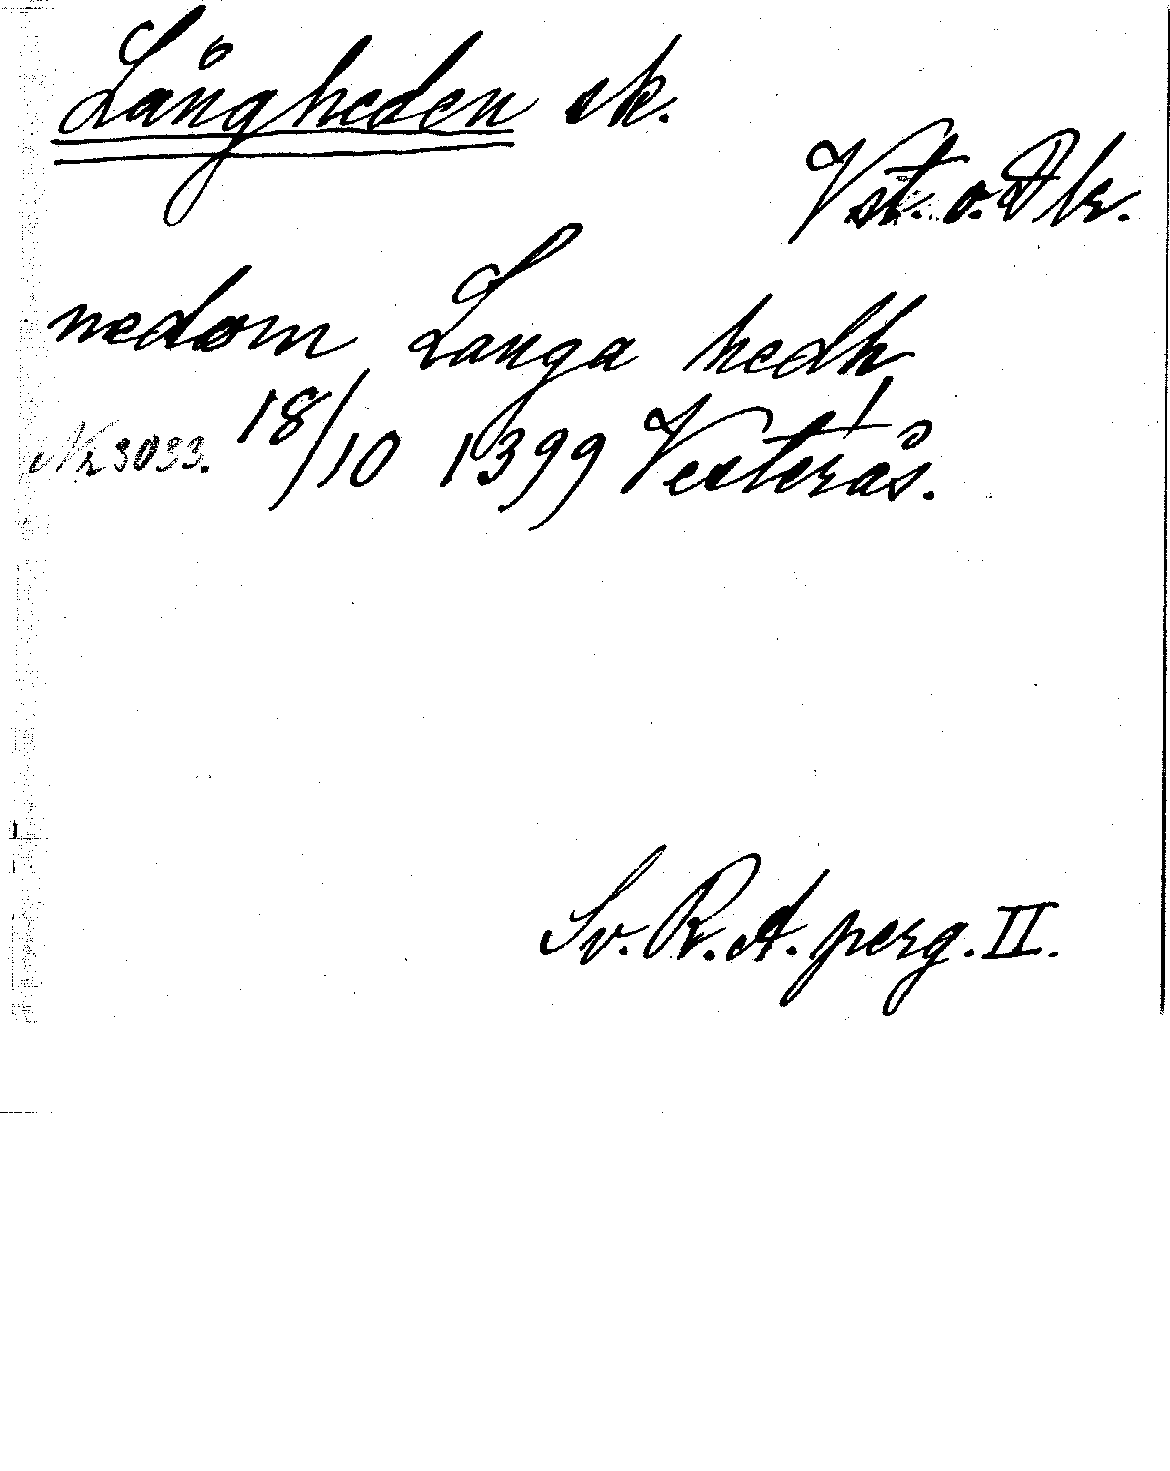 Långheden sk.
Vst. o. Dlr.
nedom Langa hedh
Nr 3033. 18/10 1399 Vesterås.
Sv. R. A. perg. II.